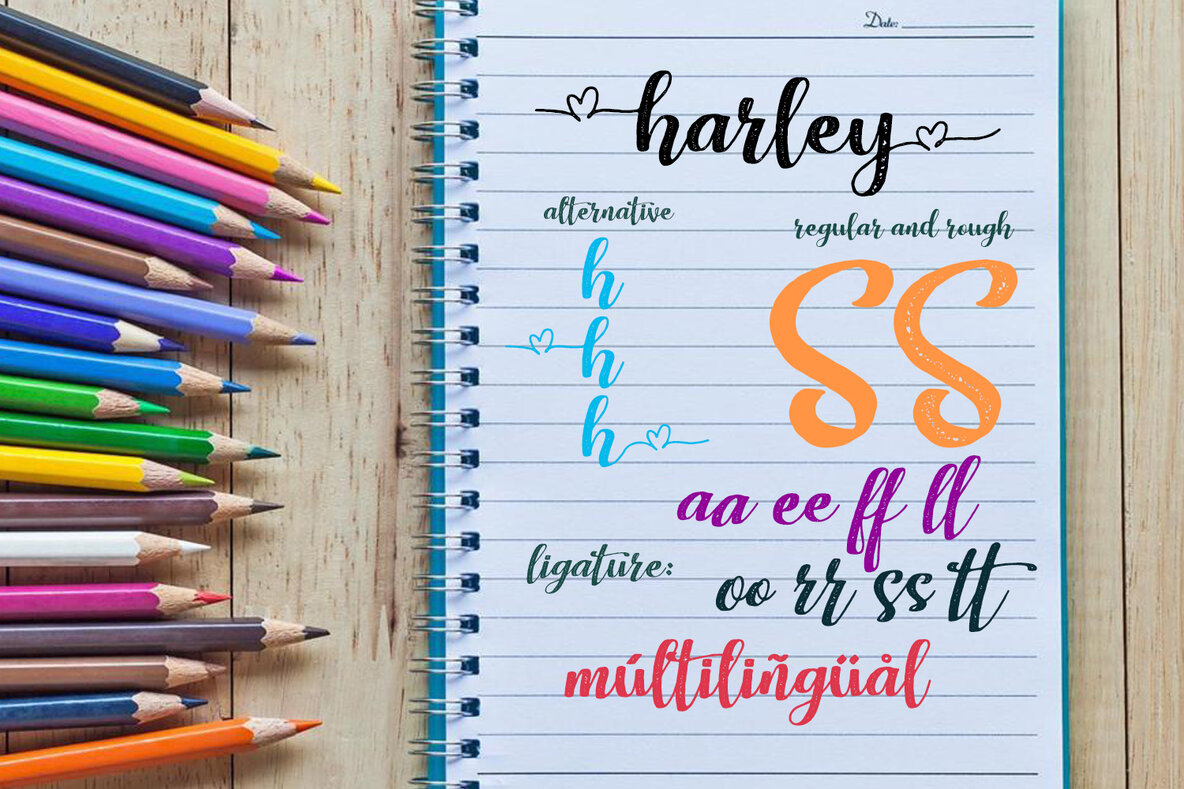 Date:
harley
alternative
regular and rough
h
h
h
SS
aa ee ff ll
ligature:
oo rr ss tt
múltiliñgüål